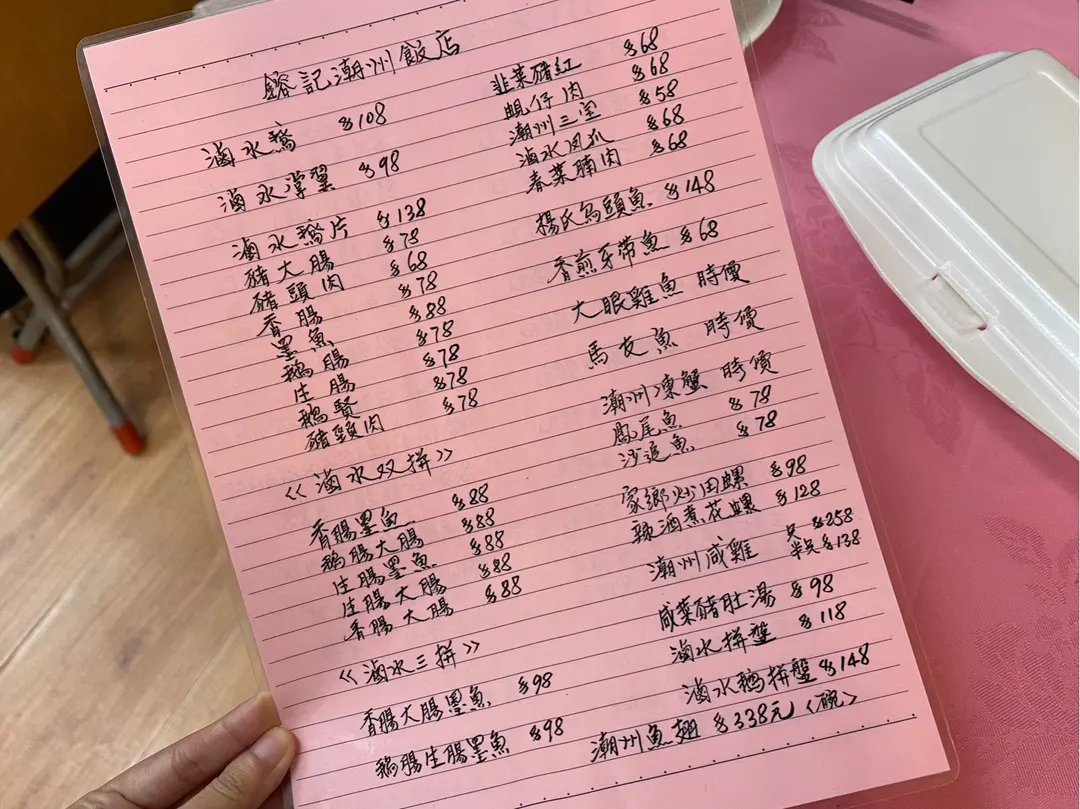 鎔記潮州飯店
滷水鵝 $108
滷水掌翼 $98
滷水鵝片 $138
豬大腸 $78
豬頭肉 $68
香腸 $78
墨魚 $88
鵝腸 $78
生腸 $78
鵝腎 $78
豬頸肉 $78
《滷水双拼》
香腸墨魚 $88
鵝腸大腸 $88
生腸墨魚 $88
生腸大腸 $88
香腸大腸 $88
《滷水三拼》
香腸大腸墨魚 $98
鵝腸生腸墨魚 $98
韭菜豬紅 $68
蜆仔肉 $68
潮州三宝 $58
滷水鳳爪 $68
春菜腩肉 $68
楊氏烏頭魚 $148
香煎牙带魚 $68
大眼雞魚 時價
馬友魚 時價
潮州凍蟹 時價
鳳尾魚 $78
沙追魚 $78
家鄉炒田螺 $98
辣酒煮花螺 $128
潮州咸雞 隻 $258
半隻 $138
咸菜豬肚湯 $98
滷水拼盤 $118
滷水鵝拼盤 $148
潮州魚翅 $338元〈碗〉